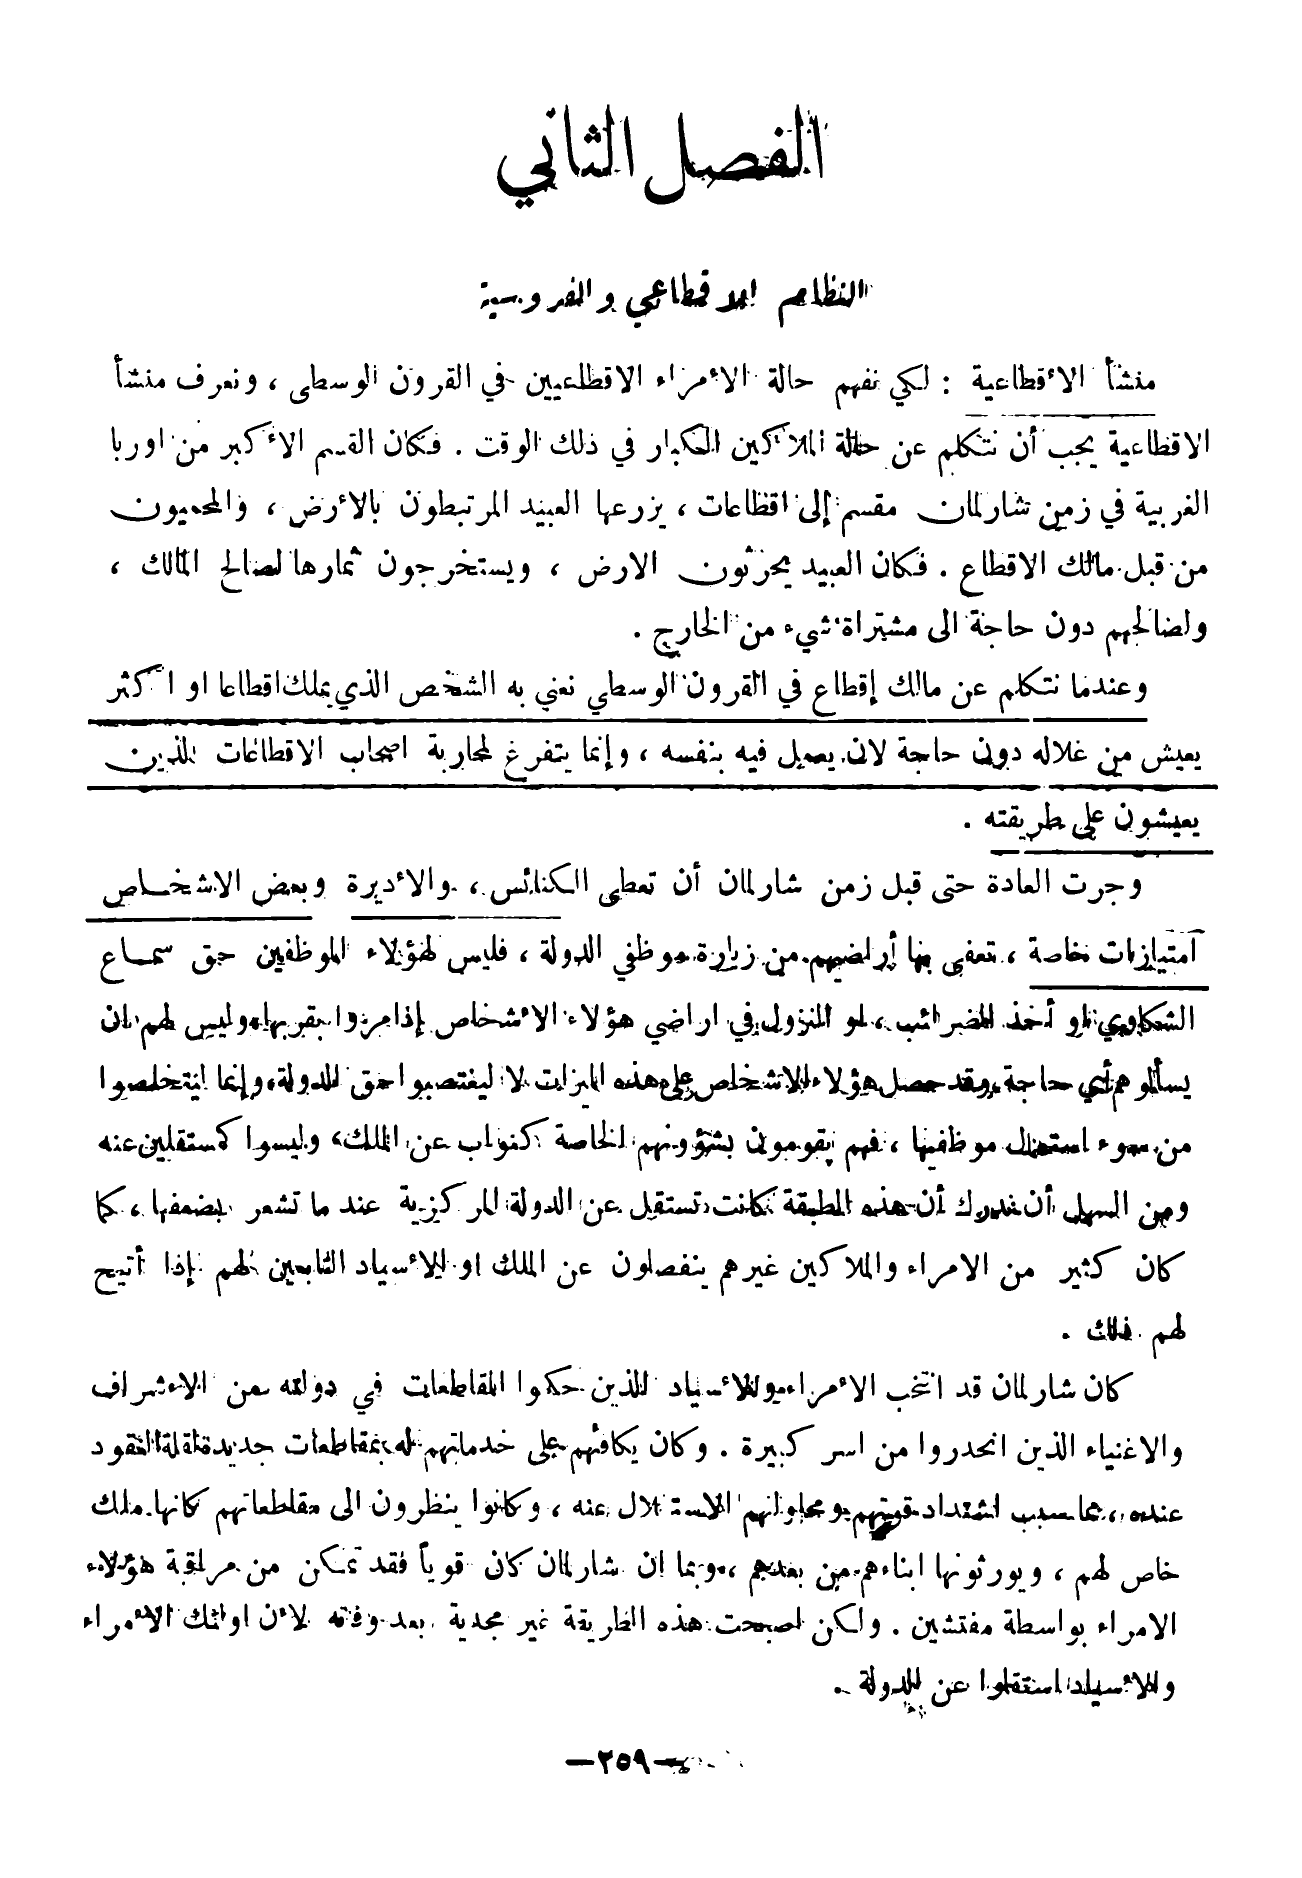 الفصل الثاني
النظام الاقطاعي والفروسية
منشأ الأقطاعية : لكي نفهم حالة الأمراء الاقطاعيين في القرون الوسطى ، ونعرف منشأ
الاقطاعية يجب أن نتكلم عن حالة الملاكين الكبار في ذلك الوقت . فكان القسم الأكبر من اوربا
الغربية في زمن شارلمان مقسم إلى اقطاعات ، يزرعها العبيد المرتبطون بالأرض ، والمحميون
من قبل مالك الاقطاع . فكان العبيد يحرثون الارض ، ويستخرجون ثمارها لصالح المالك ،
ولصالحهم دون حاجة الى مشتراة شيء من الخارج .
وعندما نتكلم عن مالك إقطاع في القرون الوسطى نعني به الشخص الذي يملك اقطاعا او اكثر
يعيش من غلاله دون حاجة لان يعمل فيه بنفسه ، وإنما يتفرغ لمحاربة اصحاب الاقطاعات الذين
يعيشون على طريقته .
وجرت العادة حتى قبل زمن شارلمان أن تعطى الكنائس ، والأديرة وبعض الاشخاص
امتيازات خاصة ، تعفى بها أراضيهم من زيارة موظفي الدولة ، فليس لهؤلاء الموظفين حق سماع
الشكاوي او أخذ الضرائب ، او النزول في اراضي هؤلاء الأشخاص إذا مروا بقربها، وليس لهم ان
يسألوهم أي حاجة وقد حصل هؤلاء الاشخاص على هذه الميزات لا ليغتصبوا حق الدولة، وإنما ليتخلصوا
من سوء استعمال موظفيها ، فهم يقومون بشؤونهم الخاصة كنواب عن الملك، وليسوا كمستقلين عنه
ومن السهل أن ندرك أن هذه الطبقة كانت تستقيل عن الدولة المركزية عند ما تشعر بضعفها ، كما
كان كثير من الامراء والملاكين غيرهم ينفصلون عن الملك او الأسياد التابعين لهم إذا أتيح
لهم ذلك .
كان شارلمان قد انتخب الأمراء والأسياد الذين حكموا المقاطعات في دولته من الأشراف
والاغنياء الذين انحدروا من اسر كبيرة . وكان يكافئهم على خدماتهم له بمقاطعات جديدة لقلة النقود
عنده ، مما سبب اشتداد قوتهم ومحاولتهم الاستقلال عنه ، وكانوا ينظرون الى مقاطعاتهم كانها ملك
خاص لهم ، ويورثونها ابناءهم من بعدهم ، وبما ان شارلمان كان قوياً فقد تمكن من مراقبة هؤلاء
الامراء بواسطة مفتشين . ولكن اصبحت هذه الطريقة غير مجدية بعد وفاته لأن اولئك الأمراء
والأسياد استقلوا عن الدولة .
—٢٥٩—